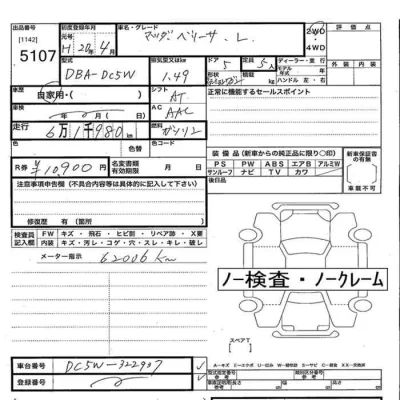 出品番号
[1142]
5107
初度登録年月
元号
H 20年 4月
車名・グレード
マツダ ベリーサ . L.
2WD
4WD
評価点
外装
内装
型式
DBA-DC5W
排気量又はkw
1.49
ドア
5
定員
5人
形状
積載量
kg
ディーラー・並行
モデル年式
ハンドル 左・右
車歴
自家用・
シフト
AT
正常に機能するセールスポイント
車検
年 月
AC
AAC
走行
6万1千980km
燃料
ガソリン
色
色替
色コード
R券
¥10,900円
名変書類有効期限
月 日
装備品(新車からの純正品に限り〇印)
PS PW ABS エアB アルミW
サンルーフ ナビ TV カワ
新車保証書の有無
有・無
後日品
注意事項申告欄(不具合内容等は具体的に記入して下さい)
修復歴 有(箇所 )
検査員記入欄
FW キズ・飛石・ヒビ割・リペア跡・X要
内装 キズ・汚レ・コゲ・穴・スレ・キレ・破レ
メーター指示
62006km
ノー検査・ノークレーム
スペアT
車台番号
DC5W-322937
登録番号
A=キズ E=エクボ U=凹み W=補修跡 S=サビ C=腐食 XX=交換済
型式指定番号
類別区分番号